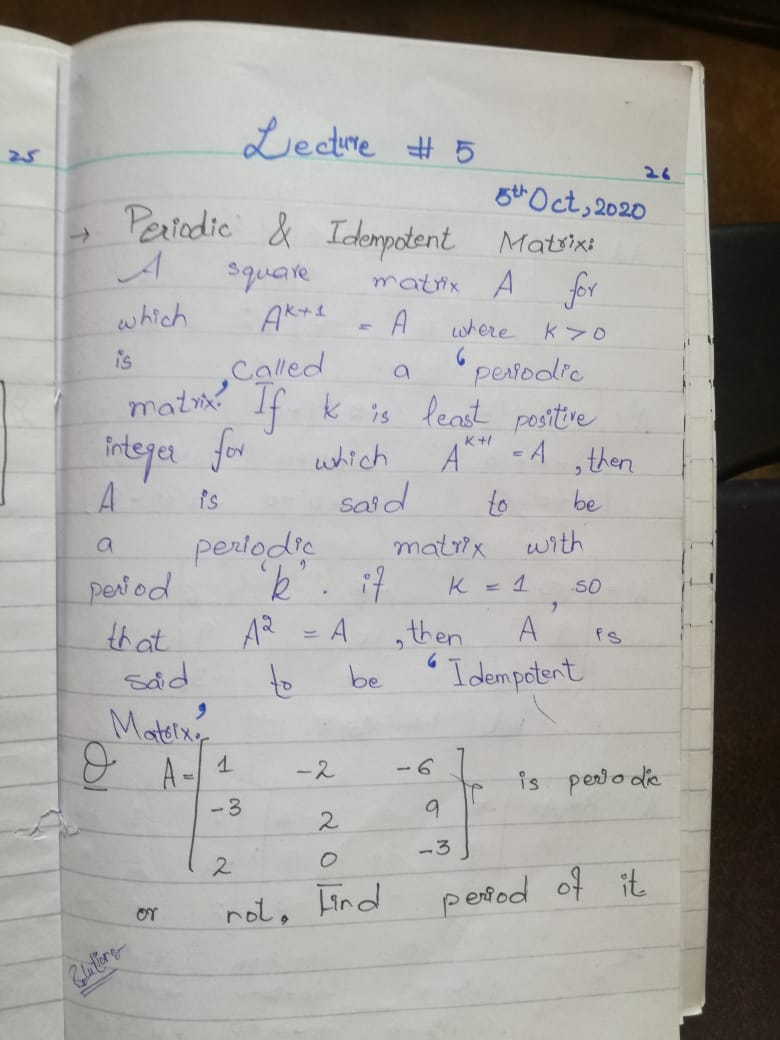 25
Lecture # 5
26
5th Oct, 2020
→ Periodic & Idempotent Matrix:
A square matrix A for
which A^k+1 = A where k > 0
is called a 'periodic
matrix.' If k is least positive
integer for which A^k+1 = A, then
A is said to be
a periodic matrix with
period 'k'. if k = 1, so
that A^2 = A, then A is
said to be 'Idempotent
Matrix.'
Q A = [ 1 -2 -6 ], is periodic
-3 2 9
2 0 -3
or not. Find period of it
Solution:-